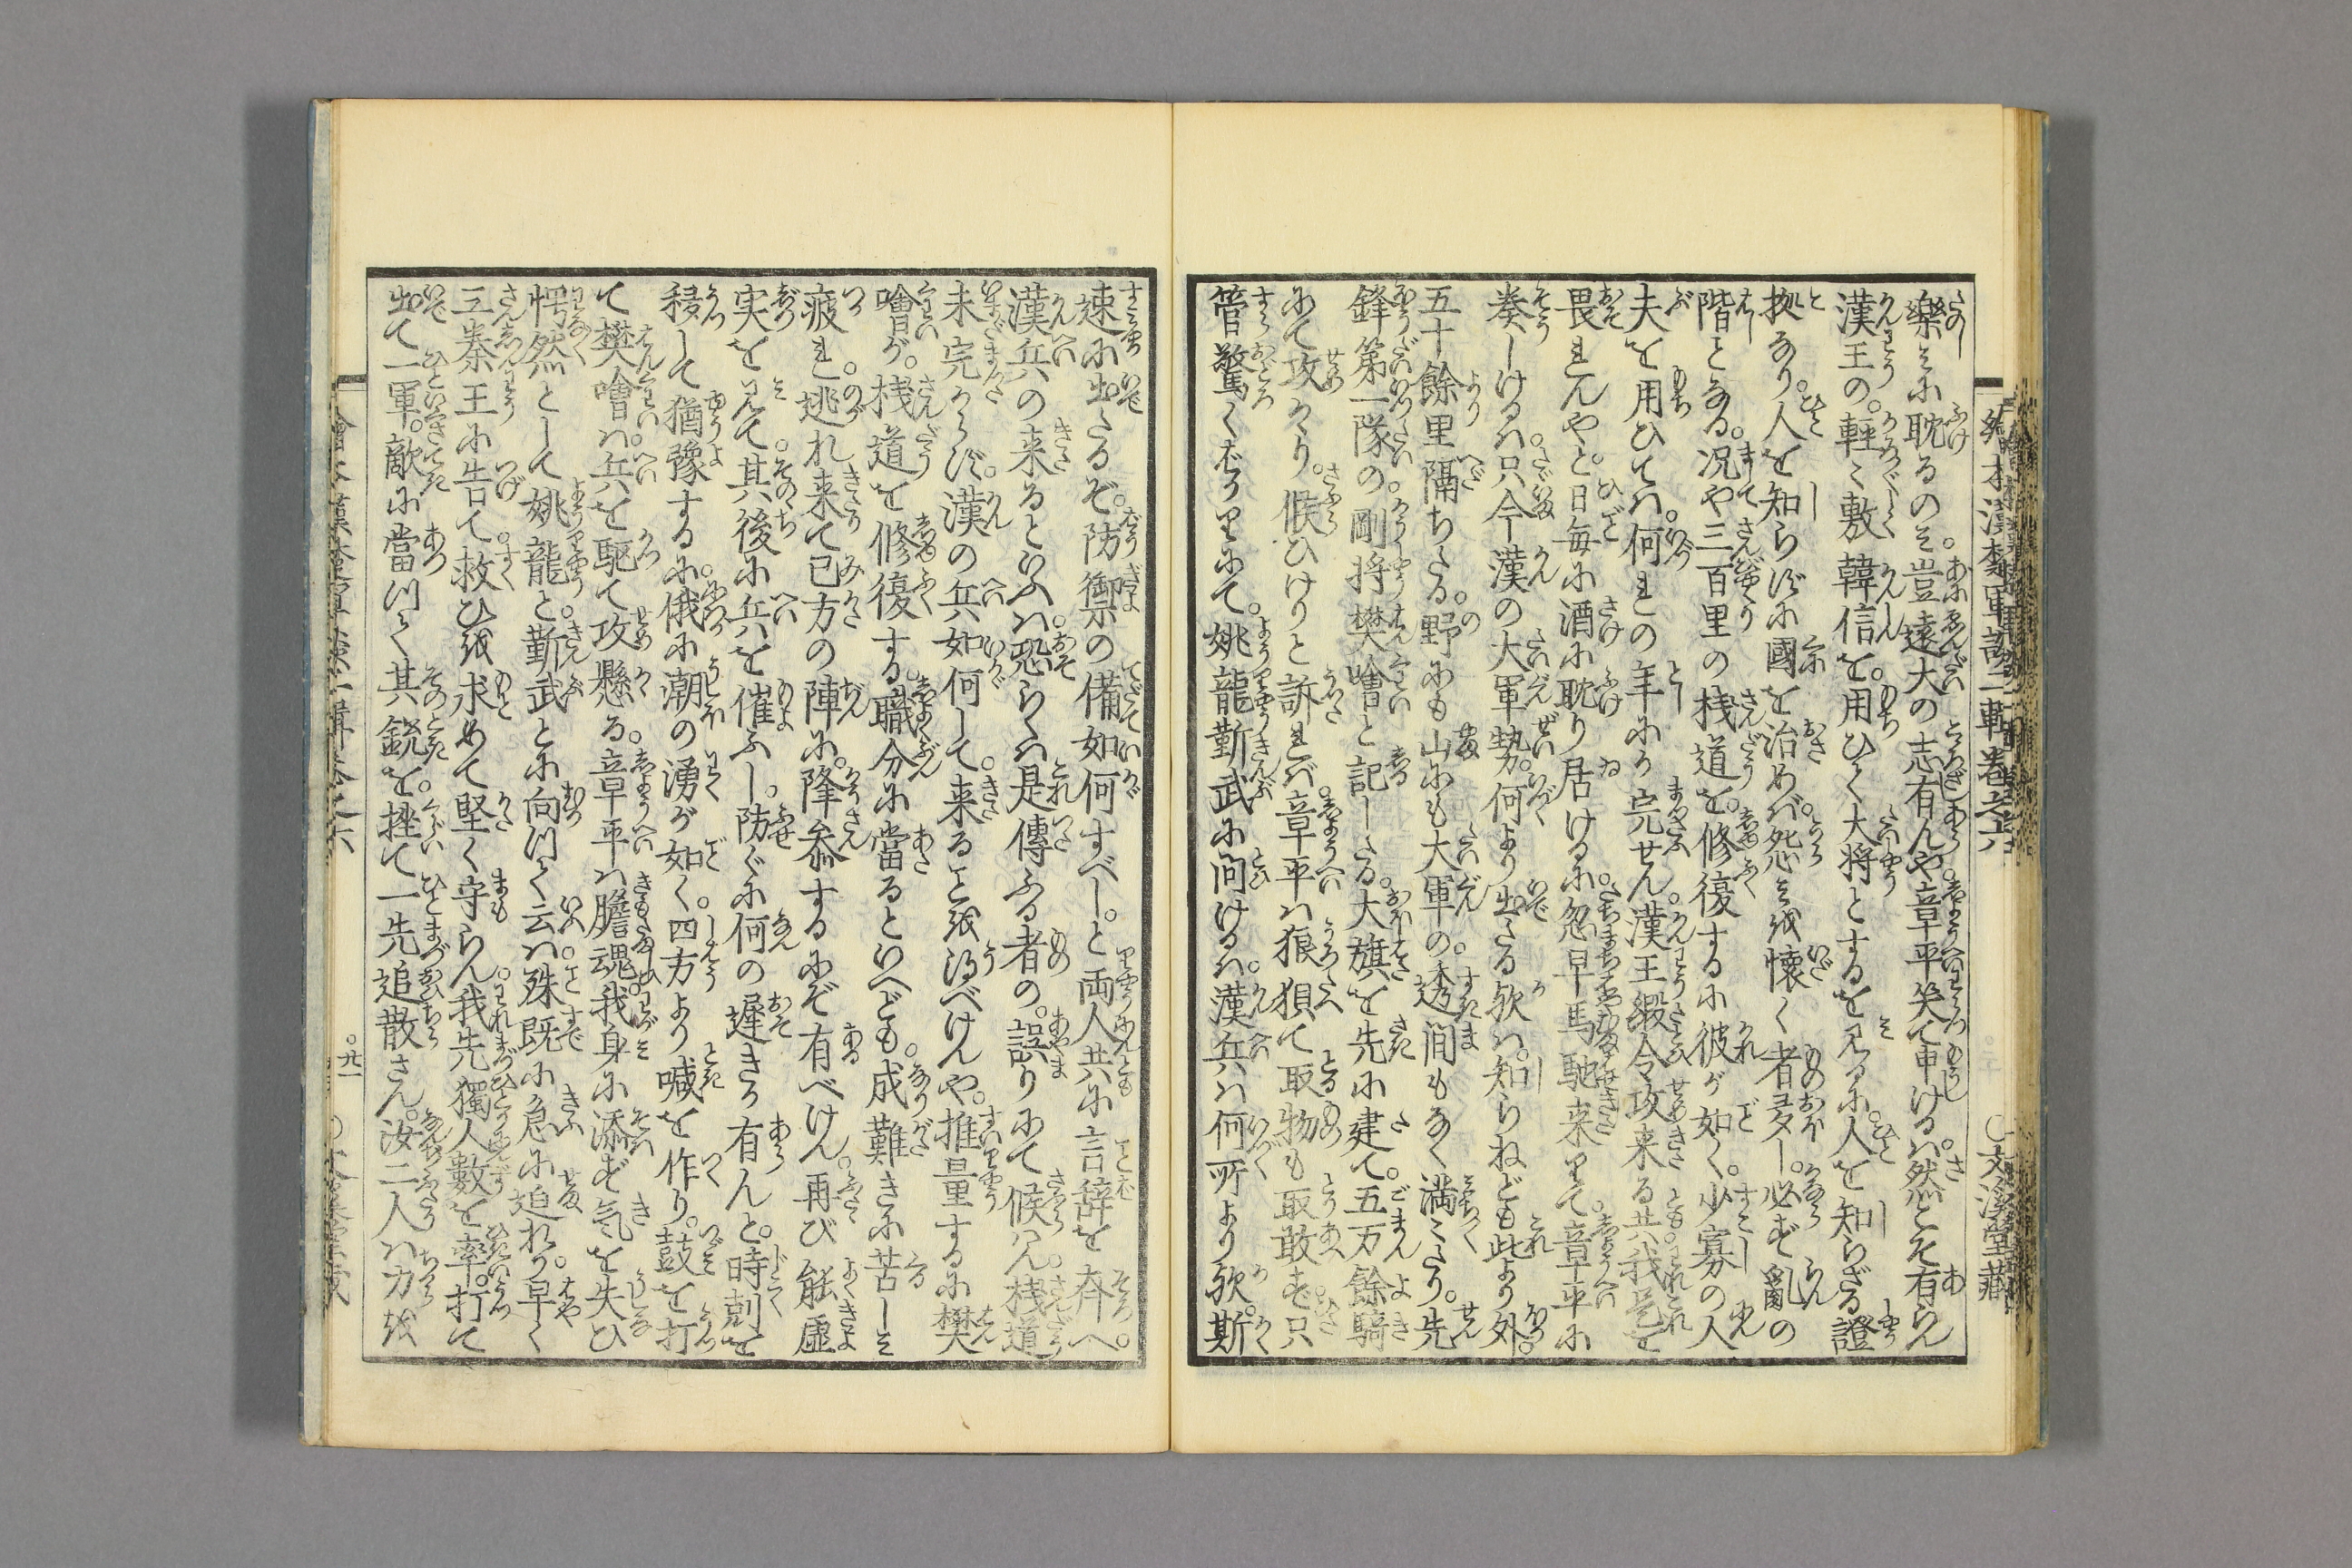 絵本漢楚軍談二輯巻之六
○文溪堂藏
樂みに耽るのみ。豈遠大の志有んや。章平笑て申けるハ。然こそ有らん
漢王の。軽々敷韓信を。用ひて大将とするを見るに。人を知らざる證
拠なり。人を知らずに國を治めバ。怨みを懐く者多し。必ず乱の
階となる。况や三百里の桟道を。修復するに彼が如く。少寡の人
夫を用ひてハ。何れの年にか完せん。漢王縦令攻来る共。我是を
畏れんやと。日毎に酒に耽り居けるに。忽早馬馳来りて。章平に
奏しけるハ。只今漢の大軍勢。何より出たる欤ハ。知らねども此より外。
五十餘里隔ちたる。野にも山にも大軍の。透間もなく満みたり。先
鋒第一隊の。剛将樊噲と記したる。大旗を先に建て。五万餘騎
にて攻かゝり。候ひけりと訴れバ。章平ハ狼狽て取物も取敢ず。只
管驚くばかりにて。姚龍靳武に問けるハ。漢兵ハ何所より欤。斯
速に出たるぞ。防禦の備如何すべし。と両人共に言辞を斉へ。
漢兵の来るといふハ。恐らくハ是傳ふる者の。誤りにて候ハん。桟道
未完からず。漢の兵如何して。来ることを得べけんや。推量するに樊
噲が。桟道を修復する。職分に當るといへども。成難きに苦しみ
疲れ。逃れ来て已方の陣に。降参するにぞ有べけん。再び能虚
実を見て。其後に兵を催ふし。防ぐに何の遅きか有んと。時刻を
移して猶豫するに。俄に潮の湧が如く。四方より喊を作り。鼓を打
て樊噲ハ。兵を駆て攻懸る。章平ハ膽魂。我身に添ず氣を失ひ
愕然として姚龍と。靳武とに向ツて云ハ。殊既に急に迫れり。早く
三秦王に告て。救ひを求めて堅く守らん。我先獨人數を率。打て
出て一軍。敵に當ツて其銳を。挫て一先追散さん。汝二人ハ力を
。廿一